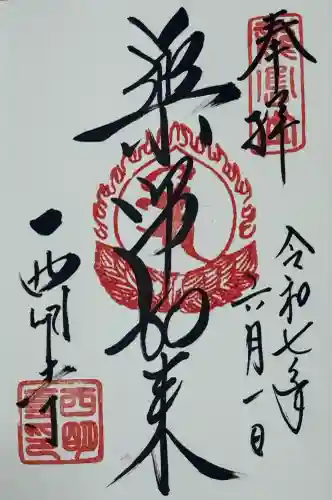 奉拝
令和七年
六月一日
薬師如来
西明寺
西明